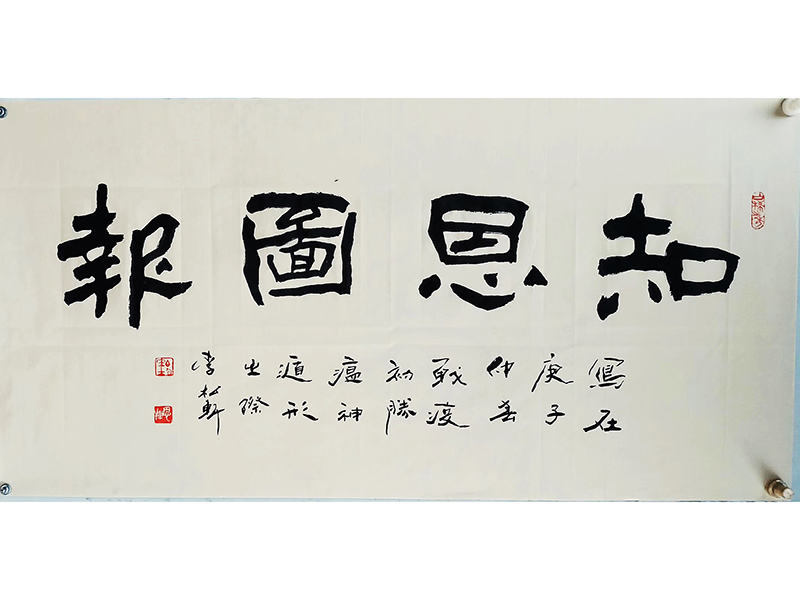 知恩圖報
寫在
庚子
仲春
戰疫
初勝
瘟神
遁形
之際
李松軒